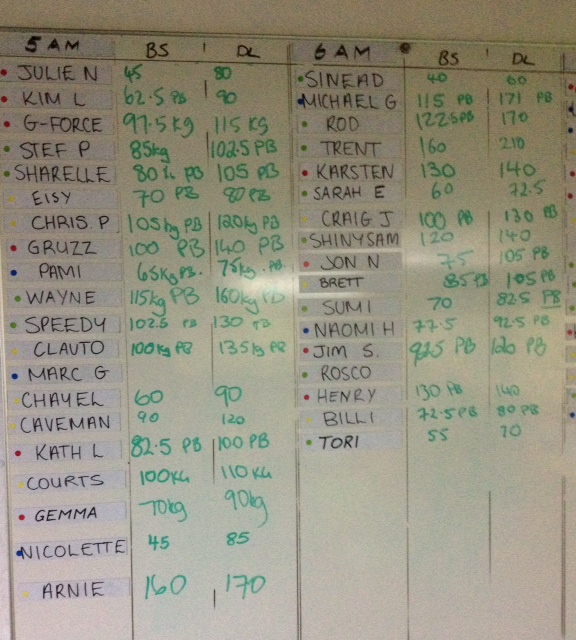 5 AM BS DL
JULIE N 45 80
KIM L 62.5 PB 90
G-FORCE 97.5 kg 115 KG
STEF P 85kg 102.5 PB
SHARELLE 80 PB 105 PB
EISY 70 PB 80 PB
CHRIS.P 105kg PB 120kg PB
GRUZZ 100 PB 140 PB
PAMI 65kg PB. 75kg.PB
WAYNE 115kg PB 160kg PB
SPEEDY 102.5 PB 130 PB
CLAUTO 100kg PB 135kg PB
MARC G
CHAYEL 60 90
CAVEMAN 90 120
KATH L 82.5 PB 100 PB
COURTS 100KG 110 KG
GEMMA 70kg 90kg
NICOLETTE 45 85
ARNIE 160 170
6 AM BS DL
SINEAD 40 60
MICHAEL G 115 PB 171 PB
ROD 122.5PB 170
TRENT 160 210
KARSTEN 130 140
SARAH E 60 72.5
CRAIG J 100 PB 130 PB
SHINYSAM 120 140
JON N 75 105 PB
BRETT 85PB 105PB
SUMI 70 82.5 PB
NAOMI H 77.5 92.5 PB
JIM S. PB 120 PB
ROSCO
HENRY 130 PB 140
BILLI 72.5PB 80 PB
TORI 55 70